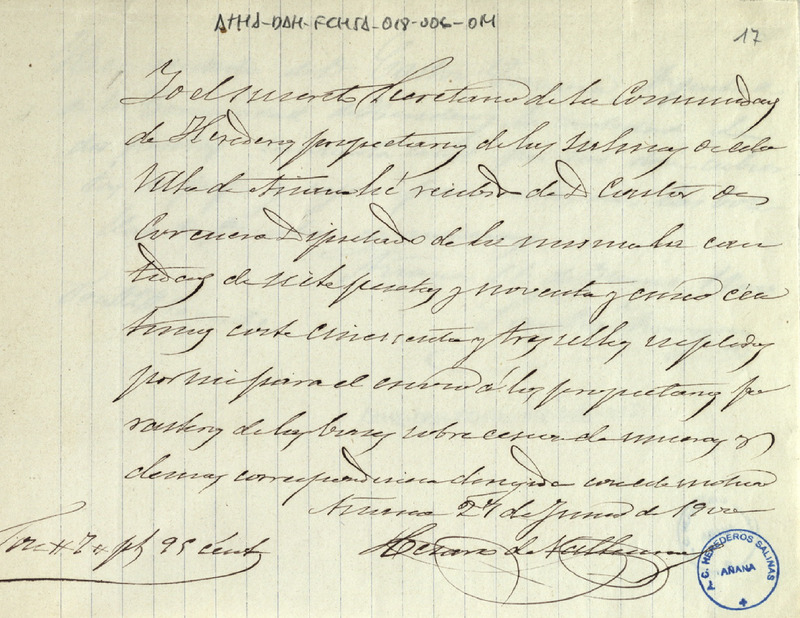 ATHA-DAH-FCHSA-018-006-01M
17
Yo el infrascrito Secretario de la Comunidad
de Herederos propietarios de las salinas de esta
Villa de Añana hé recibido de D Castor de
Corcuera Diputado de la misma la can
tidad de siete pesetas y noventa y cinco cén
timos coste cincuenta y tres sellos suplidos
por mi para el envio á los propietarios fo
rasteros de las bases sobre cesion de mueras y
demas correspondencia dirigida con ese motivo
Añana 27 de Junio de 1900
Son # 7 # pts 95 cents
de
A. C. HEREDEROS SALINAS
AÑANA